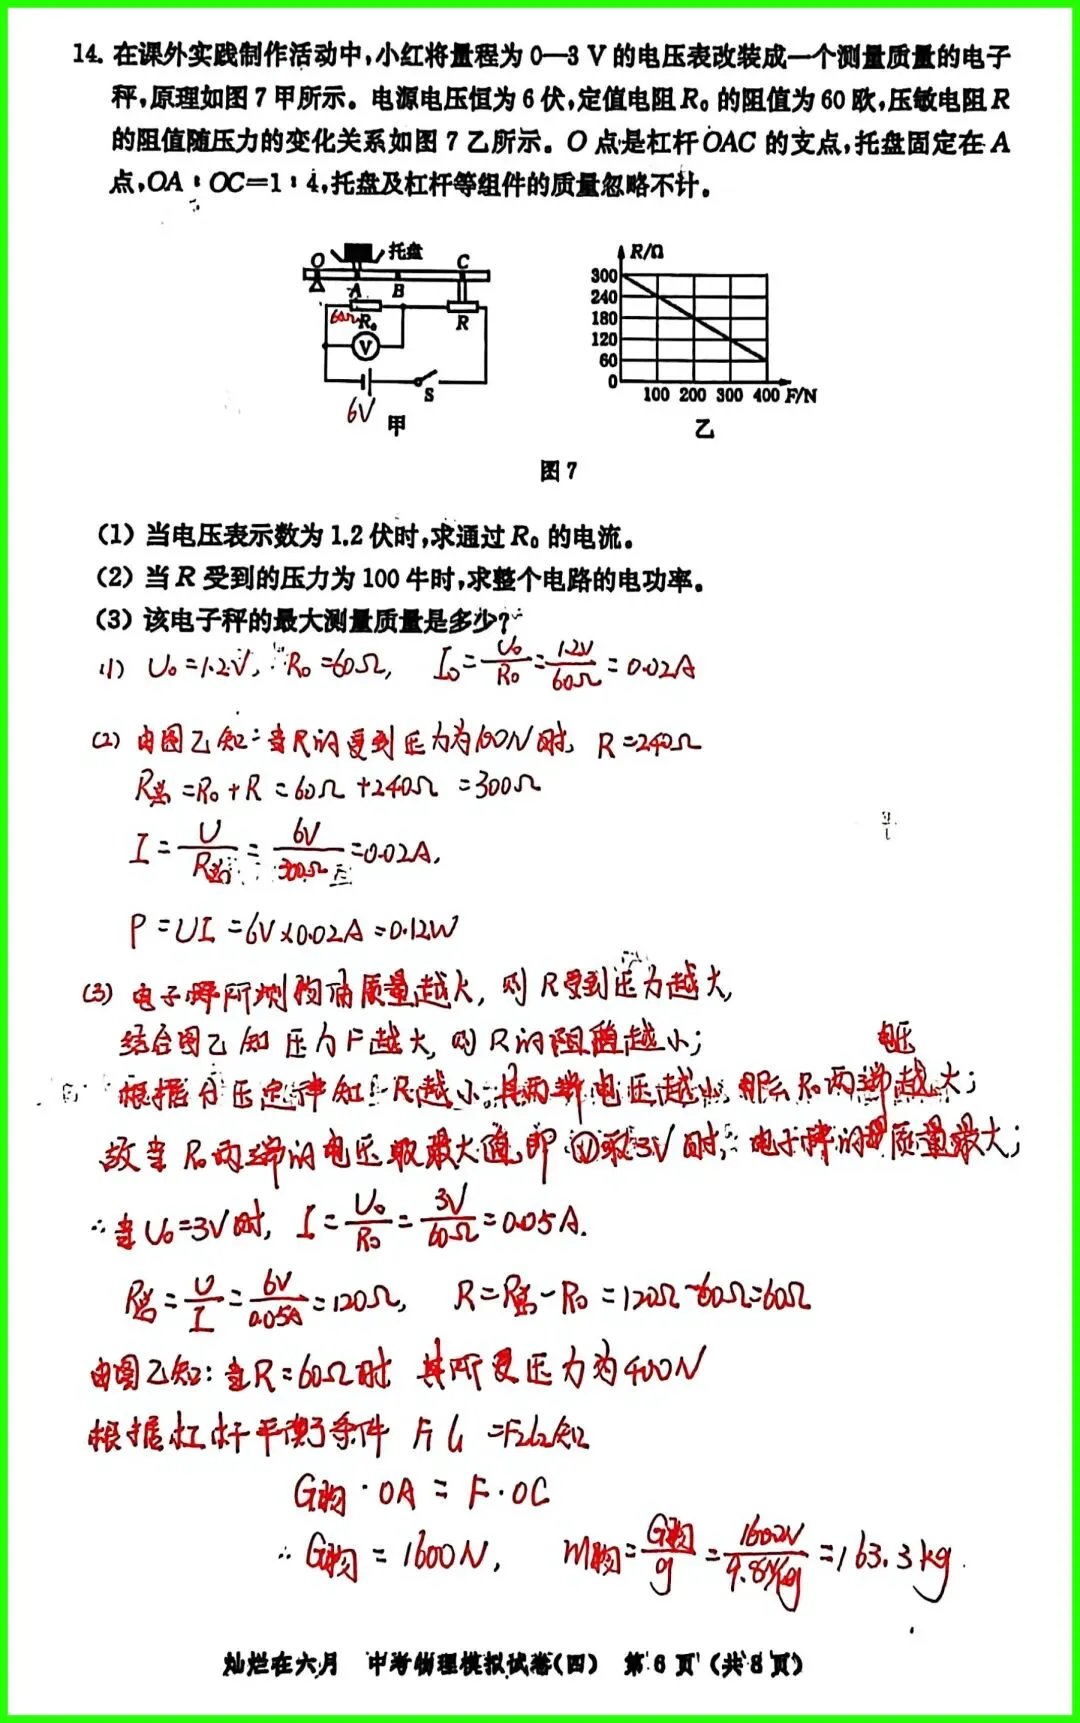 14. 在课外实践制作活动中,小红将量程为 0—3 V 的电压表改装成一个测量质量的电子
秤,原理如图 7 甲所示。电源电压恒为 6 伏,定值电阻 R₀ 的阻值为 60 欧,压敏电阻 R
的阻值随压力的变化关系如图 7 乙所示。O 点是杠杆 OAC 的支点,托盘固定在 A
点,OA∶OC=1∶4,托盘及杠杆等组件的质量忽略不计。
O 托盘 C
A B
60Ω R₀ R
V
S
6V 甲
R/Ω
300
240
180
120
60
0
100 200 300 400 F/N
乙
图 7
(1) 当电压表示数为 1.2 伏时,求通过 R₀ 的电流。
(2) 当 R 受到的压力为 100 牛时,求整个电路的电功率。
(3) 该电子秤的最大测量质量是多少?
(1) U₀=1.2V, R₀=60Ω, I₀=U₀/R₀=1.2V/60Ω=0.02A
(2) 由图乙知:当R的受到压力为100N时, R=240Ω
R总=R₀+R=60Ω+240Ω=300Ω
I=U/R总=6V/300Ω=0.02A,
P=UI=6V×0.02A=0.12W
(3) 电子秤所测物体质量越大, 则R受到压力越大,
结合图乙知压力F越大,则R的阻值越小;
电压
根据分压定律知:R越小,其两端电压越小,那么R₀两端越大;
故当R₀两端的电压取最大值,即Ⓥ取3V时,电子秤的质量最大;
∴当U₀=3V时, I=U₀/R₀=3V/60Ω=0.05A.
R总=U/I=6V/0.05A=120Ω, R=R总-R₀=120Ω-60Ω=60Ω
由图乙知:当R=60Ω时 其所受压力为400N
根据杠杆平衡条件 F₁L₁=F₂L₂知
G物·OA=F·OC
∴G物=1600N, m物=G物/g=1600N/9.8N/kg=163.3kg.
灿烂在六月 中考物理模拟试卷(四) 第 6 页(共 8 页)